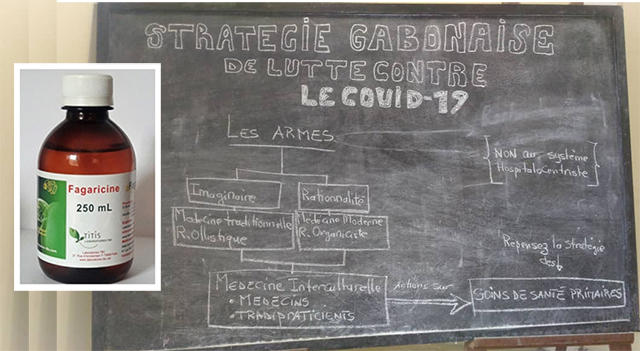 STRATEGIE GABONAISE
DE LUTTE CONTRE
LE COVID-19
LES ARMES
NON au système
HospitaloCentriste
Imaginaire
Rationnalité
Medecine traditionnelle
R. Ollistique
Medecine Moderne
R. Organiciste
Repensez la stratégie
des
Medecine Interculturelle
• MEDECINS
• TRADIPRATICIENTS
Actions sur
SOINS DE SANTÉ PRIMAIRES
Fagaricine
250 mL
TITIS